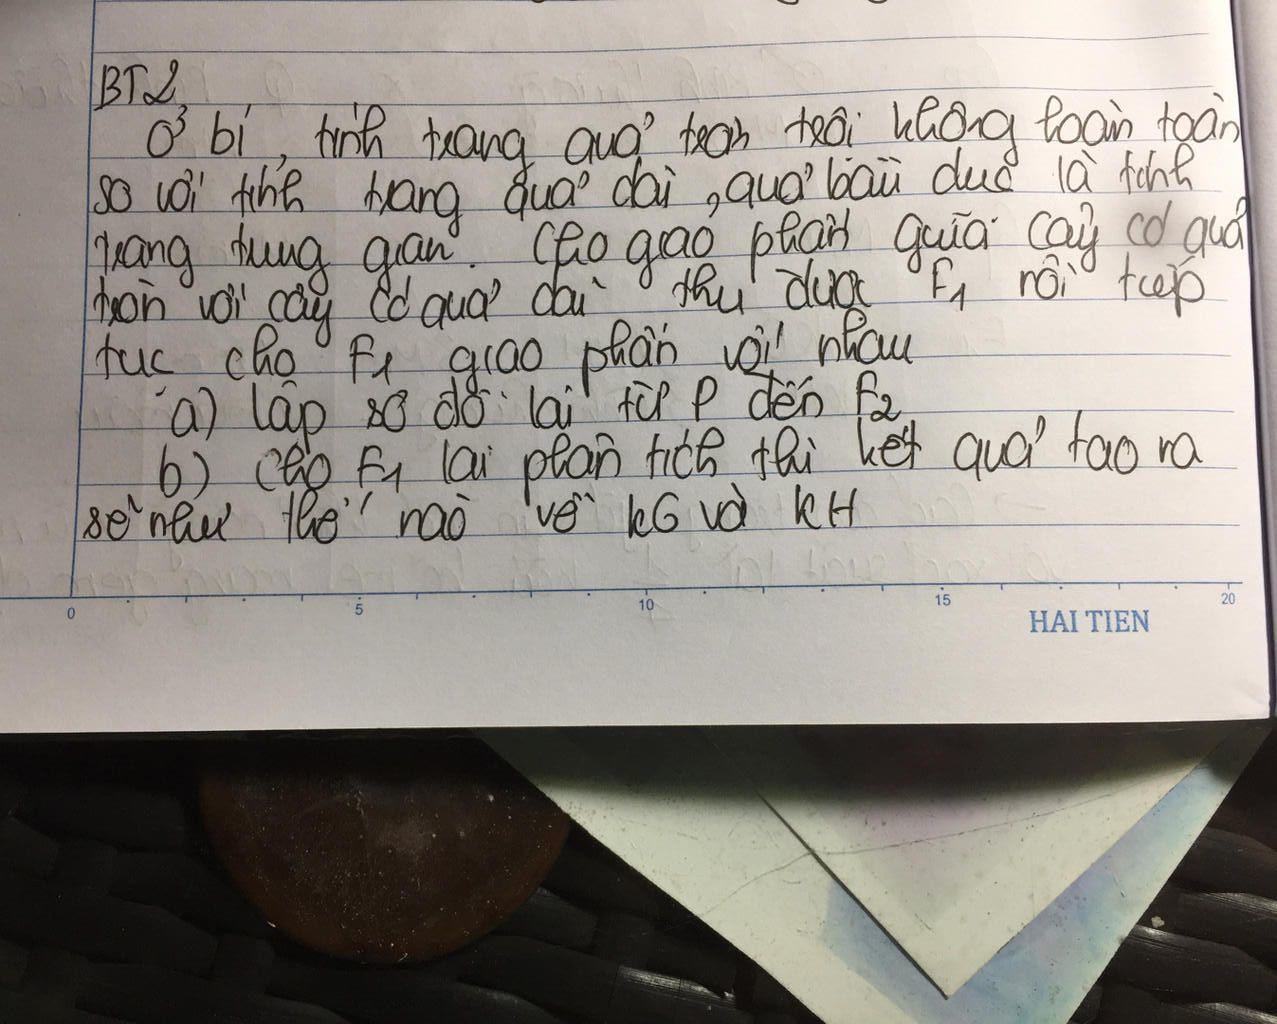 BT2
Ở bí, tính trạng quả tròn trội không hoàn toàn
so với tính trạng quả dài, quả bầu dục là tính
trạng trung gian. Cho giao phấn giữa cây có quả
tròn với cây có quả dài thu được F1 rồi tiếp
tục cho F1 giao phấn với nhau
a) lập sơ đồ lai từ P đến F2
b) Cho F1 lai phân tích thì kết quả tạo ra
sẽ như thế nào về KG và KH
0 5 10 15 20
HAI TIEN